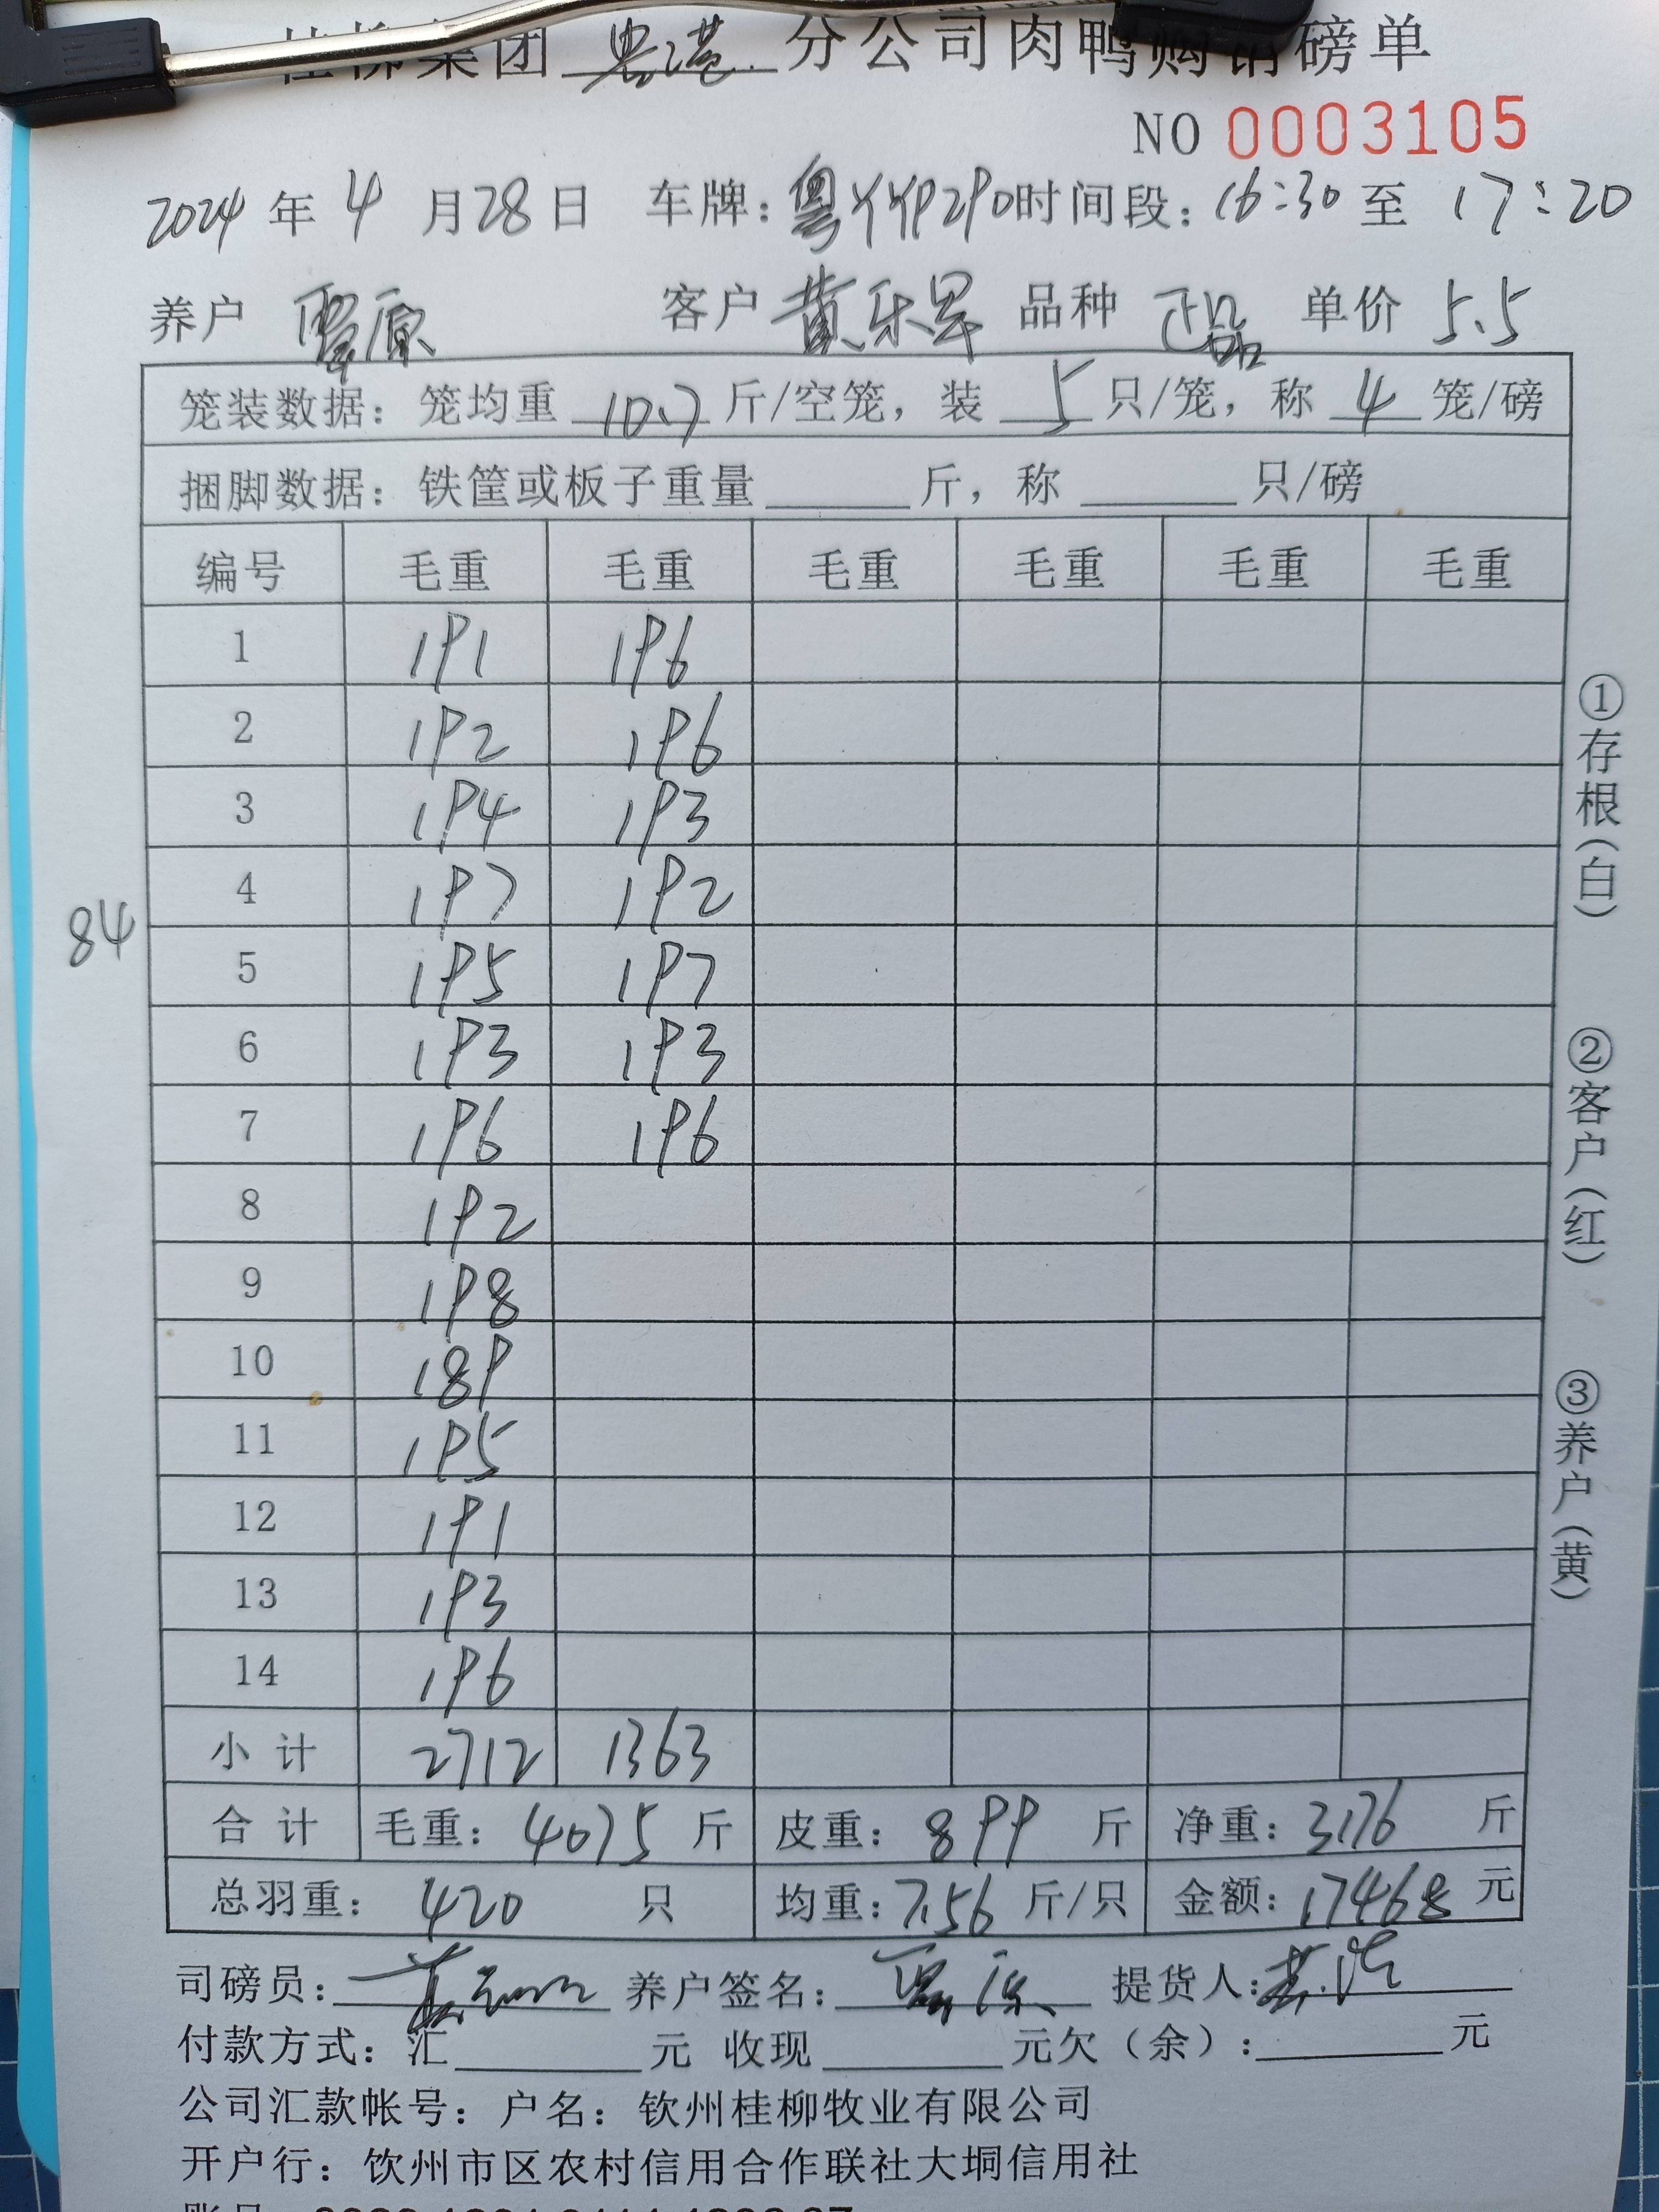 桂柳集团 贵港 分公司肉鸭购销磅单
NO 0003105
2024 年 4 月 28 日 车牌：粤YYP290 时间段：16:30 至 17:20
养户 客户 黄乐 品种 正品 单价 5.5
笼装数据：笼均重 10.7 斤/空笼，装 5 只/笼，称 4 笼/磅
捆脚数据：铁筐或板子重量______斤，称______只/磅
编号 毛重 毛重 毛重 毛重 毛重 毛重
1 191 196
2 192 196
3 194 193
4 197 192
84
5 195 197
6 193 193
7 196 196
8 192
9 198
10 189
11 195
12 191
13 193
14 196
小计 2712 1363
合计 毛重：4075 斤 皮重：899 斤 净重：3176 斤
总羽重：420 只 均重：7.56 斤/只 金额：17468 元
司磅员： 养户签名： 提货人：
付款方式：汇______元 收现______元欠（余）：______元
公司汇款帐号：户名：钦州桂柳牧业有限公司
开户行：饮州市区农村信用合作联社大垌信用社
①存根（白）
②客户（红）
③养户（黄）